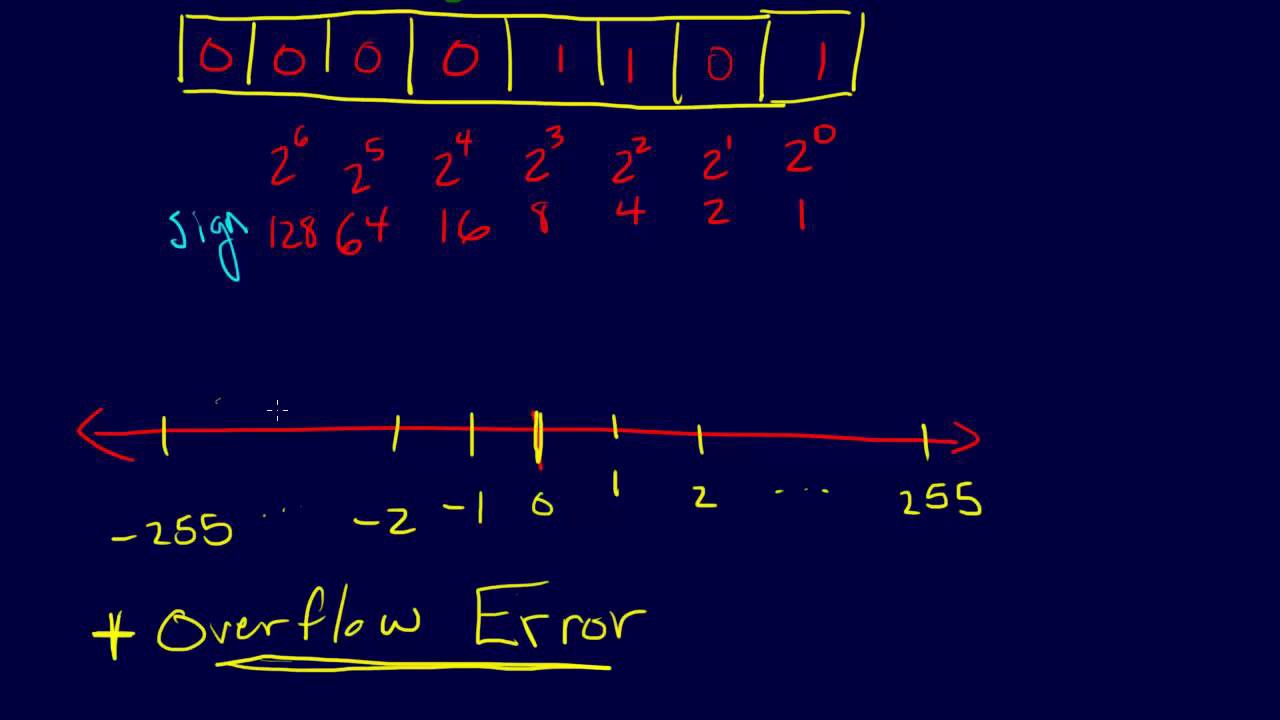 0 0 0 0 1 1 0 1
2⁶ 2⁵ 2⁴ 2³ 2² 2¹ 2⁰
sign 128 64 16 8 4 2 1
-255 ... -2 -1 0 1 2 ... 255
+ Overflow Error